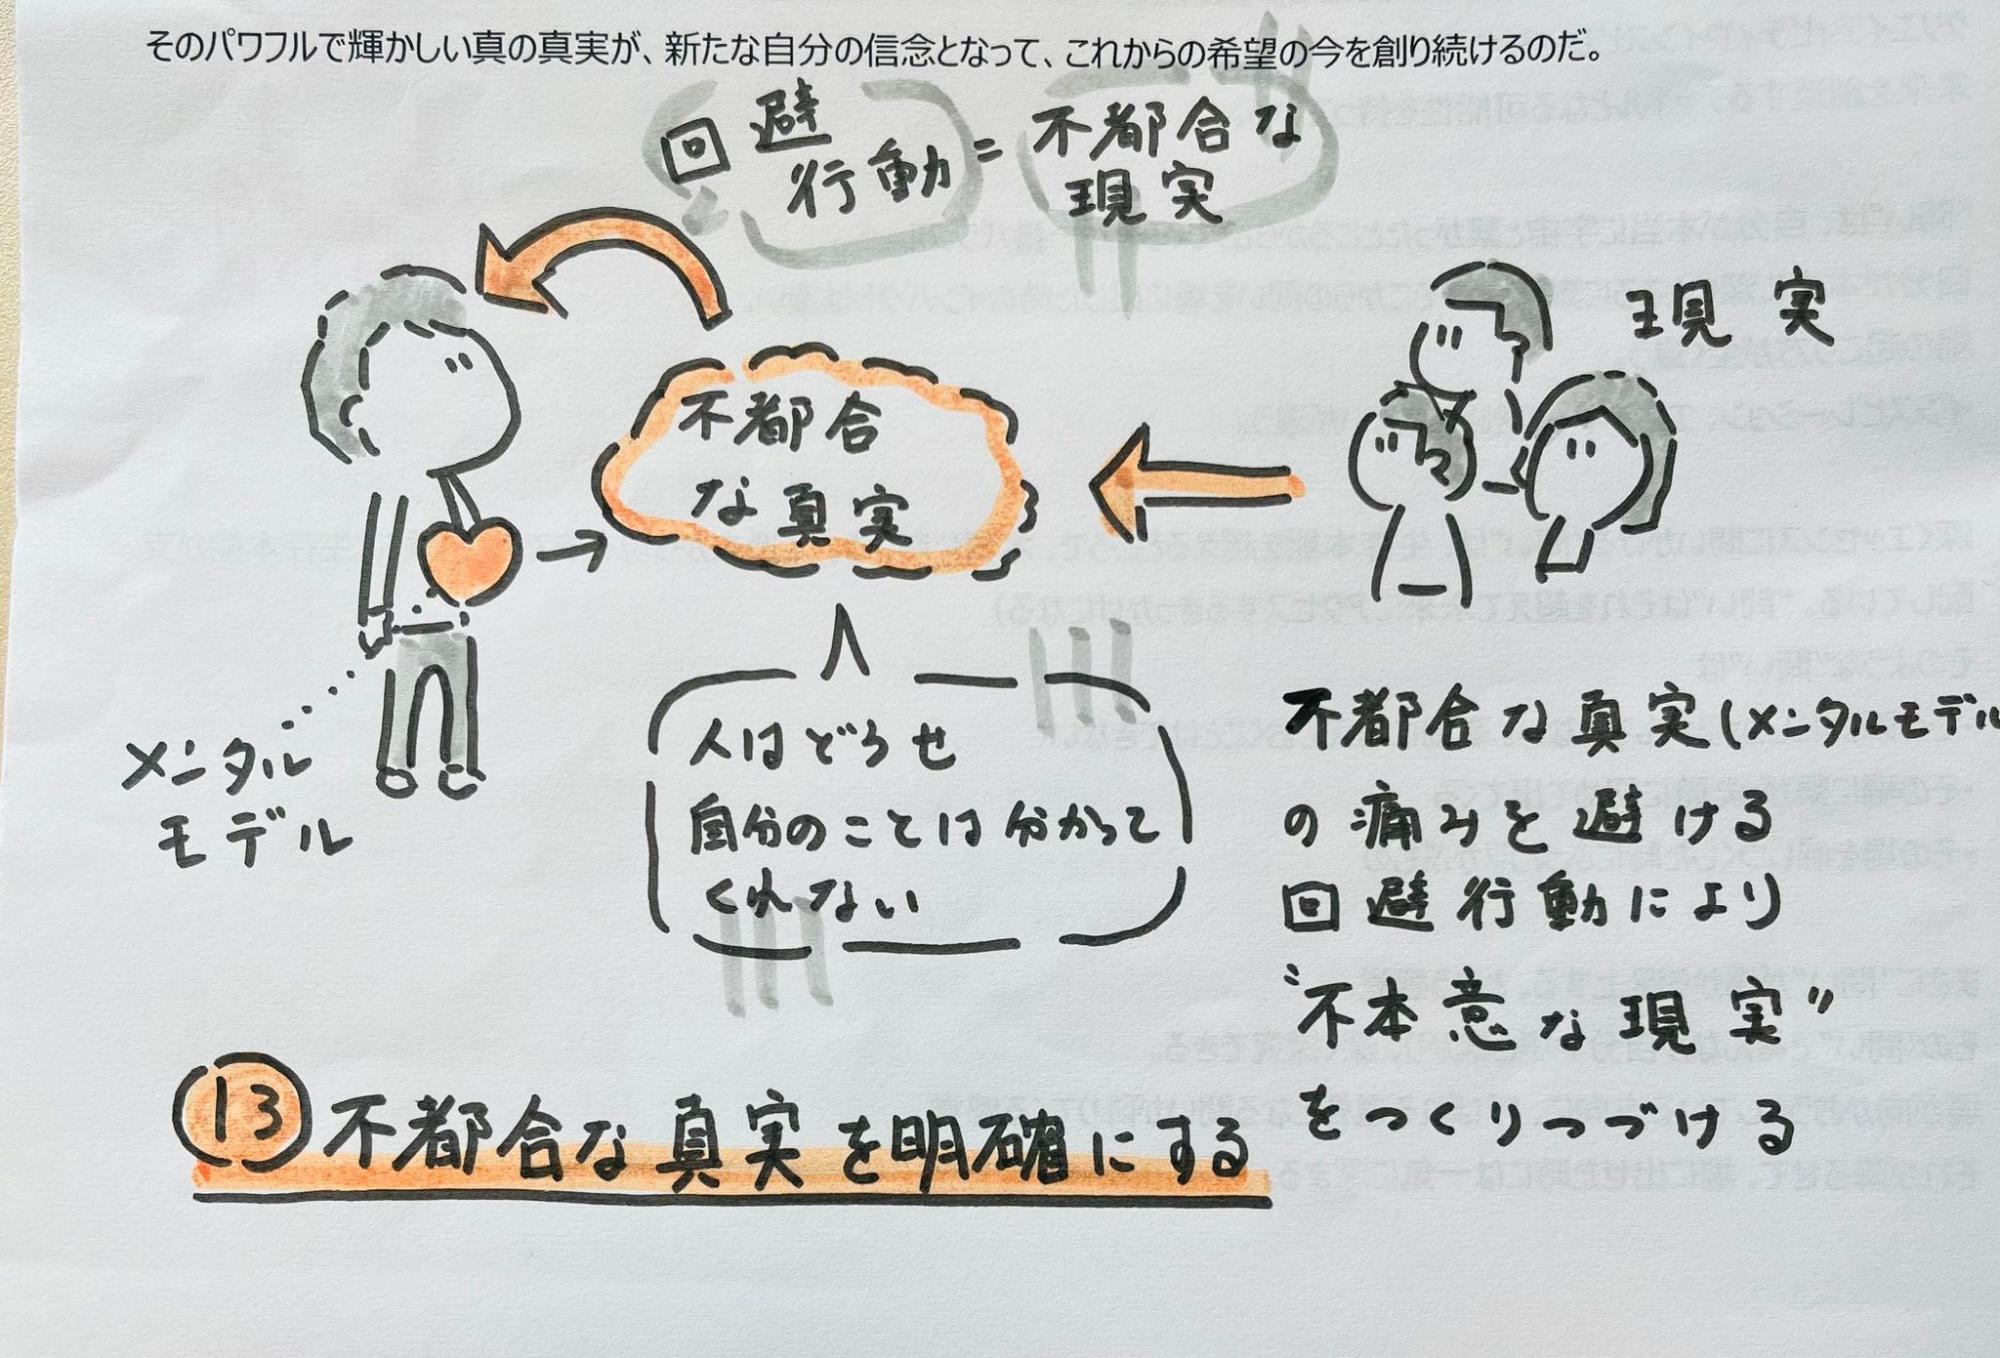 そのパワフルで輝かしい真の真実が、新たな自分の信念となって、これからの希望の今を創り続けるのだ。
回避
行動
=
不都合な
現実
現実
不都合
な真実
メンタル
モデル
人はどうせ
自分のことは分かって
くれない
不都合な真実(メンタルモデル
の痛みを避ける
回避行動により
“不本意な現実”
をつくりつづける
⑬不都合な真実を明確にする